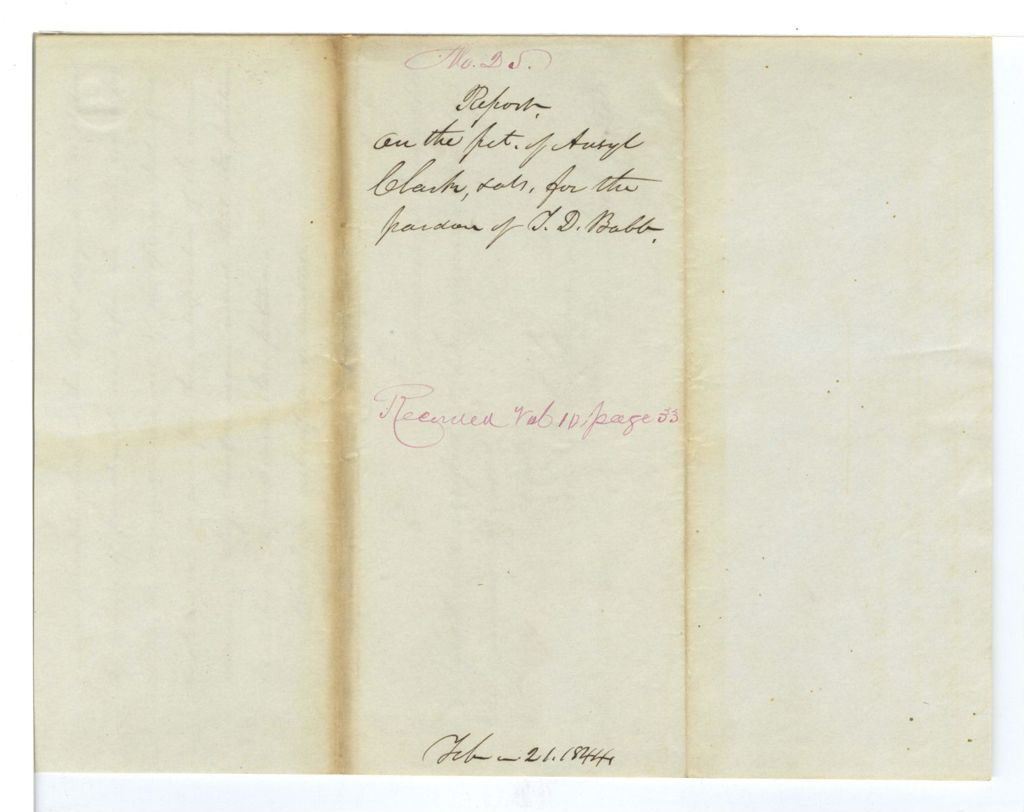 No. 25.
Report
on the pet. of Ansyl
Clark, & als. for the
pardon of T. D. Babb.
Recorded Vol 10, page 33
Feb 21. 1844